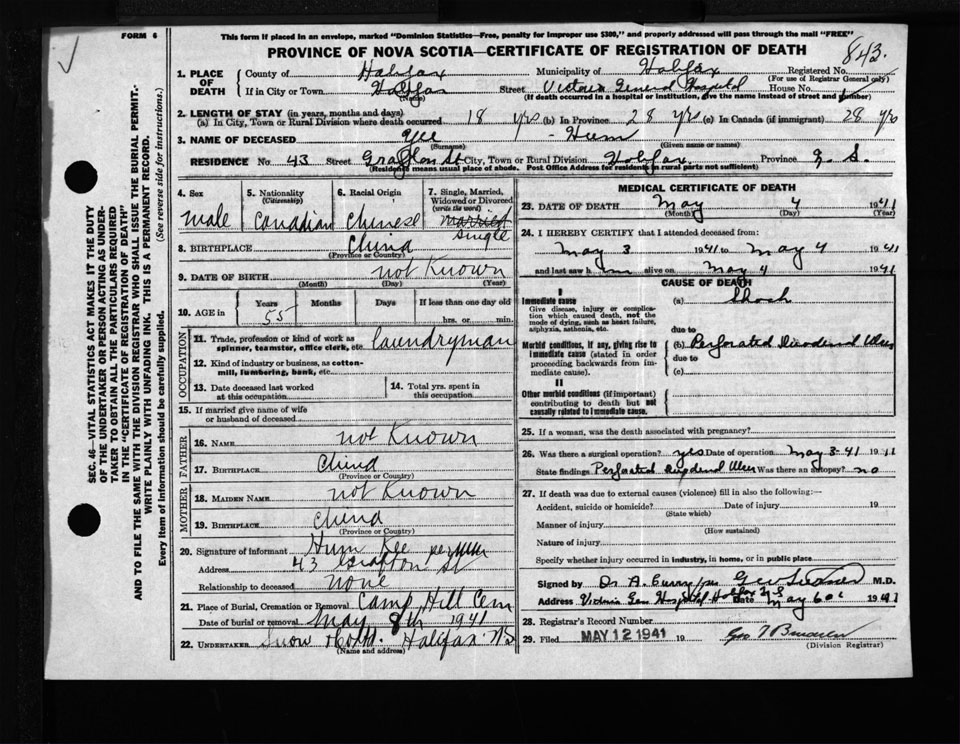 FORM 6
This form if placed in an envelope, marked "Dominion Statistics—Free, penalty for improper use $300," and properly addressed will pass through the mail "FREE"
PROVINCE OF NOVA SCOTIA—CERTIFICATE OF REGISTRATION OF DEATH
843.
1. PLACE OF DEATH
County of Halifax Municipality of Halifax Registered No.
(For use of Registrar General only)
If in City or Town Halifax Street Victoria General Hospital House No.
(Name) (If death occurred in a hospital or institution, give the name instead of street and number)
2. LENGTH OF STAY (in years, months and days)
(a) In City, Town or Rural Division where death occurred 18 yrs (b) In Province 28 yrs (c) In Canada (if immigrant) 28 yrs
3. NAME OF DECEASED Yee - Hum
(Surname) (Given name or names)
RESIDENCE No. 43 Street Grafton St City, Town or Rural Division Halifax Province N. S.
(Residence means usual place of abode. Post Office Address for residents in rural parts not sufficient)
4. Sex
male
5. Nationality (Citizenship)
Canadian
6. Racial Origin
Chinese
7. Single, Married, Widowed or Divorced (write the word)
married
single
8. BIRTHPLACE China
(Province or Country)
9. DATE OF BIRTH not Known
(Month) (Day) (Year)
10. AGE in
Years Months Days If less than one day old
55 hrs. or min.
OCCUPATION
11. Trade, profession or kind of work as spinner, teamster, office clerk, etc. laundryman
12. Kind of industry or business, as cotton-mill, lumbering, bank, etc.
13. Date deceased last worked at this occupation
14. Total yrs. spent in this occupation
15. If married give name of wife or husband of deceased
FATHER
16. NAME not Known
17. BIRTHPLACE China
(Province or Country)
MOTHER
18. MAIDEN NAME not Known
19. BIRTHPLACE China
(Province or Country)
20. Signature of informant Hum Kee per
Address 43 Grafton St
Relationship to deceased none
21. Place of Burial, Cremation or Removal Camp Hill Cem
Date of burial or removal May 8th 1941
22. UNDERTAKER Snow Halifax NS
(Name and address)
MEDICAL CERTIFICATE OF DEATH
23. DATE OF DEATH May 4 1941
(Month) (Day) (Year)
24. I HEREBY CERTIFY that I attended deceased from:
May 3 1941 to May 4 1941
and last saw him alive on May 4 1941
CAUSE OF DEATH
I
Immediate cause
Give disease, injury or complication which caused death, not the mode of dying, such as heart failure, asphyxia, asthenia, etc.
(a) Shock
due to
Morbid conditions, if any, giving rise to immediate cause (stated in order proceeding backwards from immediate cause).
(b) Perforated Duodenal Ulcer
due to
(c)
II
Other morbid conditions (if important) contributing to death but not causally related to immediate cause.
25. If a woman, was the death associated with pregnancy?
26. Was there a surgical operation? yes Date of operation May 3-41 1941
State findings Perforated Duodenal Ulcer Was there an autopsy? no
27. If death was due to external causes (violence) fill in also the following:—
Accident, suicide or homicide? Date of injury 19
(State which)
Manner of injury
(How sustained)
Nature of injury
Specify whether injury occurred in industry, in home, or in public place
Signed by Dr A. Curry per M.D.
Address Victoria Gen Hospital Halifax N S Date May 6 1941
28. Registrar's Record Number
29. Filed MAY 12 1941 19
(Division Registrar)
SEC. 46—VITAL STATISTICS ACT MAKES IT THE DUTY
OF THE UNDERTAKER OR PERSON ACTING AS UNDER-
TAKER TO OBTAIN ALL THE PARTICULARS REQUIRED
IN THE "CERTIFICATE OF REGISTRATION OF DEATH"
AND TO FILE THE SAME WITH THE DIVISION REGISTRAR WHO SHALL ISSUE THE BURIAL PERMIT.
WRITE PLAINLY WITH UNFADING INK. THIS IS A PERMANENT RECORD.
Every item of information should be carefully supplied. (See reverse side for instructions.)